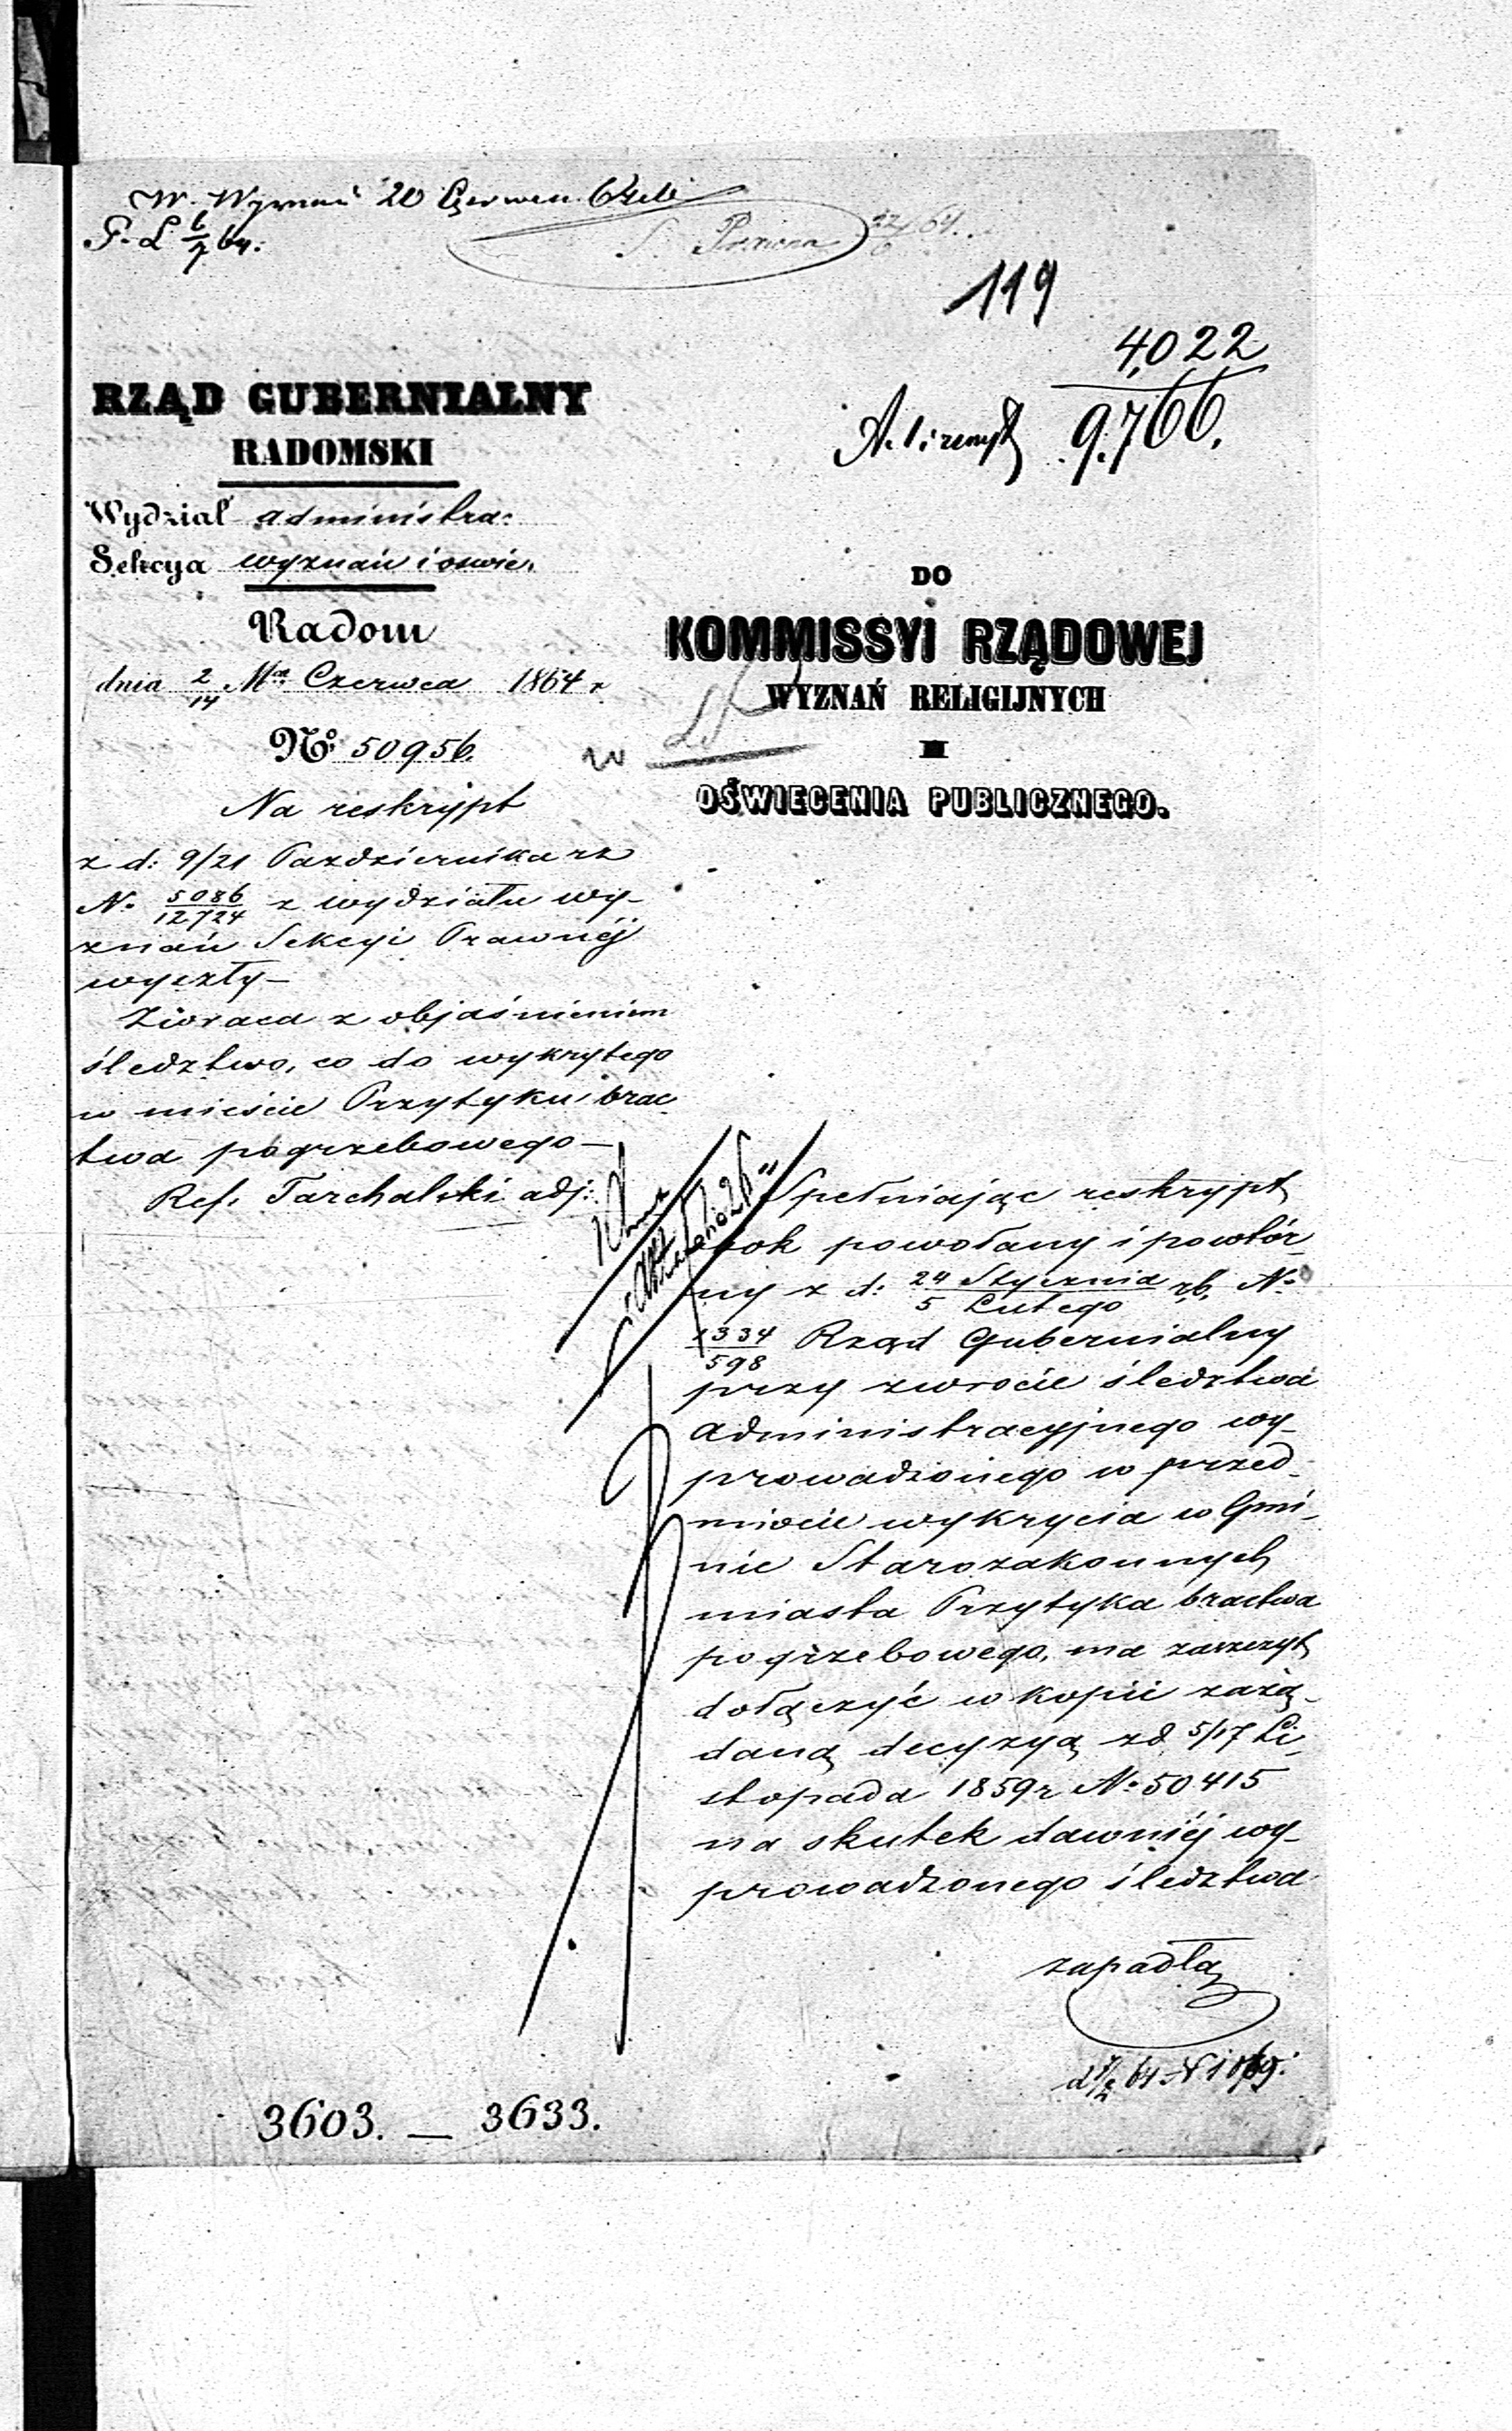 W. Wyznań 20 Czerwca 64
119
4022
9.766.
RZĄD GUBERNIALNY
RADOMSKI
Wydział administra:
Sekcya wyznań i oświe.
Radom
dnia 2/14 Ma Czerwca 1864 r
No 50956.
Na reskrypt
z d: 9/21 Października rz
No 5086/12724 z wydziału wy-
znań Sekcyi Prawnéj
wyszły—
Zwraca z objaśnieniem
śledztwo, co do wykrytego
w mieście Przytyku brac
twa pogrzebowego—
Ref. Tarchalski adj:
DO
KOMMISSYI RZĄDOWEJ
WYZNAŃ RELIGIJNYCH
I
OŚWIECENIA PUBLICZNEGO.
Spełniając reskrypt
obok powołany i powtór
ny z d: 24 Stycznia/5 Lutego rb. No
1334/598 Rząd Gubernialny
przy zwrocie śledztwa
administracyjnego wy-
prowadzonego w przed-
miocie wykrycia w Gmi-
nie Starozakonnych
miasta Przytyka bractwa
pogrzebowego, ma zaszczyt
dołączyć w kopii zażą-
daną decyzyą z d 5/17 Li-
stopada 1859 r No 50415
na skutek dawniéj wy-
prowadzonego śledztwa
zapadłą
3603. — 3633.